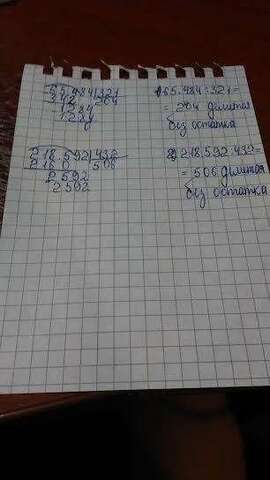 65.484 321
342 204
1284
1284
0
1) 65.484:321=
= 204 делится
без остатка
218.592 432
2160 506
2592
2592
2) 218.592:432=
= 506 делится
без остатка